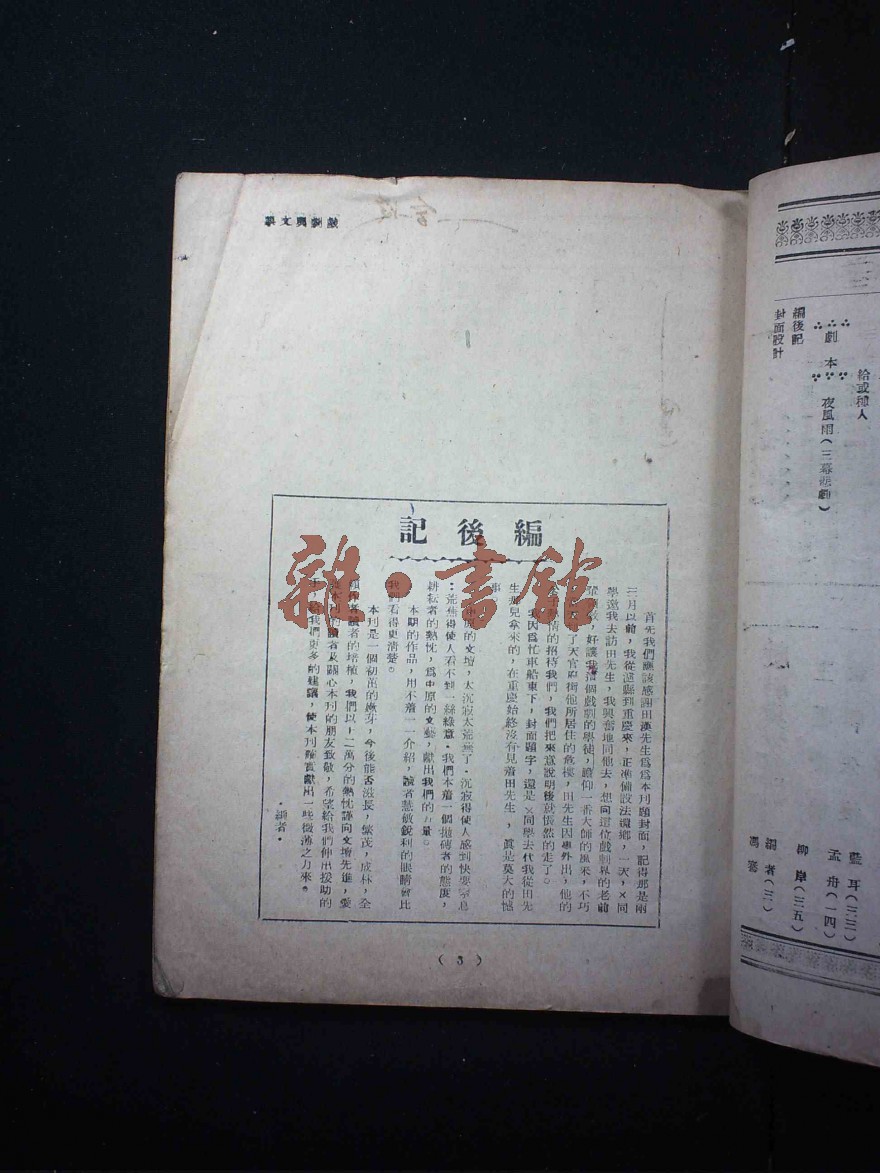 戲劇與文學
編後記
首先我們應該感謝田漢先生爲本刊題封面，記得那是兩
三月以前，我從這縣到重慶來，正準備設法還鄉，一天，×同
學邀我去訪田先生，我興奮地同他去，想向這位戲劇界的老前
輩，好讓我這個戲劇的學徒，瞻仰一番大師的風采，不巧
了天官府街他所居住的危樓，田先生因事外出，他的
情的招待我們，我們把來意說明後就悵然的走了。
我因爲忙車船東下，封面題字，還是×同學去代我從田先
生那兒拿來的，在重慶始終沒有見着田先生，眞是莫大的憾
事。
原的文壇，太沉寂太荒蕪了。沉寂得使人感到快要窒息
；荒蕪得使人看不到一絲綠意。我們本着一個拋磚者的態度，
耕耘者的熱忱，爲中原的文藝，獻出我們的力量。
本期的作品，用不着一一介紹，讀者慧敏銳利的眼睛會比
我們看得更清楚。
本刊是一個初茁的嫩芽，今後能否滋長，繁茂，成林，全
賴作者讀者的培植，我們以十二萬分的熱忱謹向文壇先進，愛
本刊的讀者及關心本刊的朋友致敬，希望給我們伸出援助的
手，給我們更多的建議，使本刊確實獻出一些微薄之力來。
·編者·
（3）
給或種人
∴劇本∵ 夜風雨（三幕悲劇）
編後記
封面設計
藍耳（三三）
孟舟（一四）
柳岸（三五）
編者（三）
馮
雜·書館